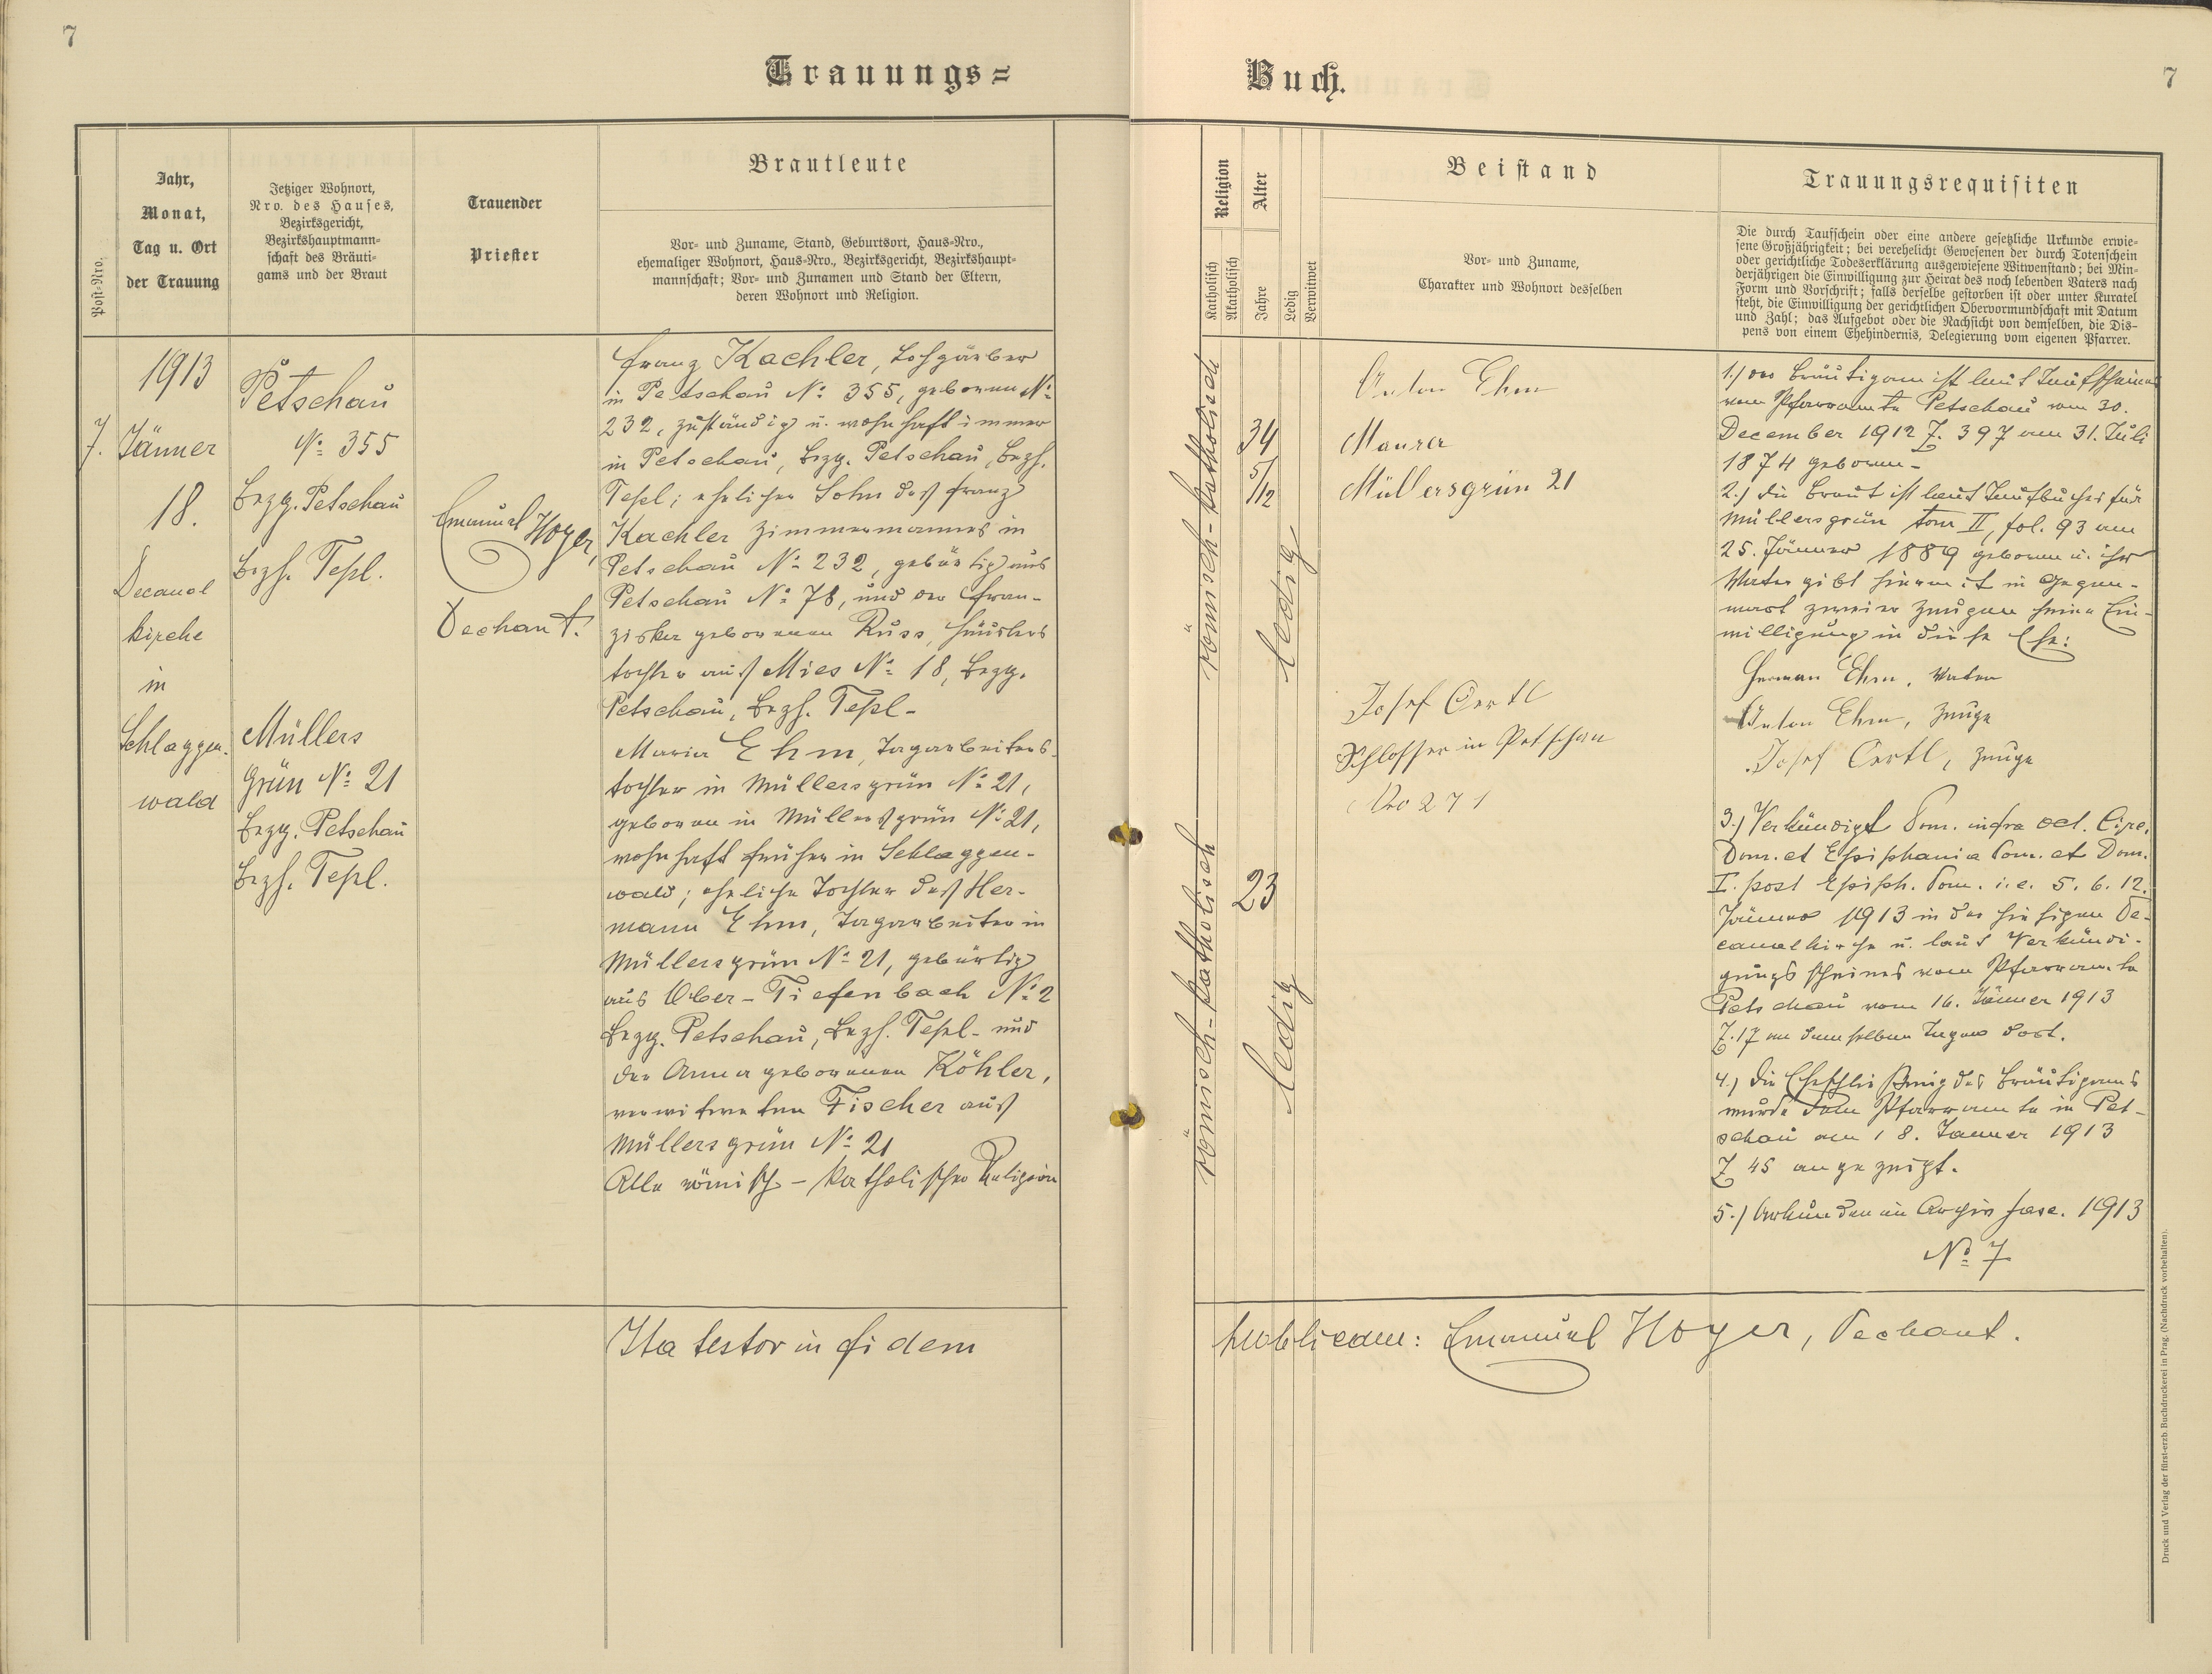 7
Trauungs=
Buch.
7
Post-Nro.
Jahr,
Monat,
Tag u. Ort
der Trauung
Jetziger Wohnort,
Nro. des Hauses,
Bezirksgericht,
Bezirkshauptmann-
schaft des Bräuti-
gams und der Braut
Trauender
Priester
Brautleute
Vor- und Zuname, Stand, Geburtsort, Haus-Nro.,
ehemaliger Wohnort, Haus-Nro., Bezirksgericht, Bezirkshaupt-
mannschaft; Vor- und Zunamen und Stand der Eltern,
deren Wohnort und Religion.
Religion
Katholisch
Akatholisch
Alter
Jahre
Ledig
Verwitwet
Beistand
Vor- und Zuname,
Charakter und Wohnort desselben
Trauungsrequisiten
Die durch Taufschein oder eine andere gesetzliche Urkunde erwie-
sene Großjährigkeit; bei verehelicht Gewesenen der durch Totenschein
oder gerichtliche Todeserklärung ausgewiesene Witwenstand; bei Min-
derjährigen die Einwilligung zur Heirat des noch lebenden Vaters nach
Form und Vorschrift; falls derselbe gestorben ist oder unter Kuratel
steht, die Einwilligung der gerichtlichen Obervormundschaft mit Datum
und Zahl; das Aufgebot oder die Nachsicht von demselben, die Dis-
pens von einem Ehehindernis, Delegierung vom eigenen Pfarrer.
7.
1913
Jänner
18.
Decanal
kirche
in
Schlaggen-
wald
Petschau
No 355
Bezg. Petschau
Bezh. Tepl.
Müllers
grün No 21
Bezg. Petschau
Bezh. Tepl.
Emanuel Hoyer,
Dechant.
Franz Kaehler, Lohgärber
in Petschau No 355, geboren No
232, zuständig u. wohnhaft immer
in Petschau, Bezg. Petschau, Bezh.
Tepl; ehelicher Sohn des Franz
Kaehler Zimmermannes in
Petschau No 232, gebürtig aus
Petschau No 78, und der Fran-
ziska geborenen Russ, Häuslers
tochter aus Mies No 18, Bezg.
Petschau, Bezh. Tepl-
Maria Ehm, Tagarbeiters-
tochter in Müllersgrün No 21,
geboren in Müllersgrün No 21,
wohnhaft früher in Schlaggen-
wald; eheliche Tochter des Her-
mann Ehm, Tagarbeiter in
Müllersgrün No 21, gebürtig
aus Ober-Tiefenbach No 2
Bezg. Petschau, Bezh. Tepl- und
der Anna geborenen Köhler,
verwitweten Fischer aus
Müllersgrün No 21
Alle römisch-katholischer Religion
römisch-katholisch
34
5/12
ledig
römisch-katholisch
23
ledig
Anton Ehm
Maurer
Müllersgrün 21
Josef Oertl
Schlosser in Petschau
Nro 271
1.) Der Bräutigam ist laut Taufscheines
vom Pfarramte Petschau vom 30.
December 1912 Z. 397 am 31. Juli
1874 geboren-
2.) die Braut ist laut Taufbuches für
Müllersgrün tom II, fol. 93 am
25. Jänner 1889 geboren u. ihr
Vater gibt hiermit in Gegen-
wart zweier Zeugen seine Ein-
willigung in diese Ehe:
Herman Ehm, Vater
Anton Ehm, Zeuge
Josef Oertl, Zeuge
3.) Verkündigt Dom. infra oct. Circ.
Dom. et Epiphania Dom. et Dom.
I. post Epiph. Dom. i.e. 5. 6. 12.
Jänner 1913 in der hiesigen De-
canalkirche u. laut Verkündi-
gungsscheines vom Pfarramte
Petschau vom 16. Jänner 1913
Z. 17 an demselben Tagen dort.
4.) die Eheschließung des Bräutigams
wurde dem Pfarramte in Pet-
schau am 18. Jänner 1913
Z 45 angezeigt.
5.) Urkunden im Archiv fasc. 1913
No 7
Ita testor in fidem
publicam: Emanuel Hoyer, Dechant.
Druck und Verlag der fürst-erzb. Buchdruckerei in Prag. (Nachdruck vorbehalten).